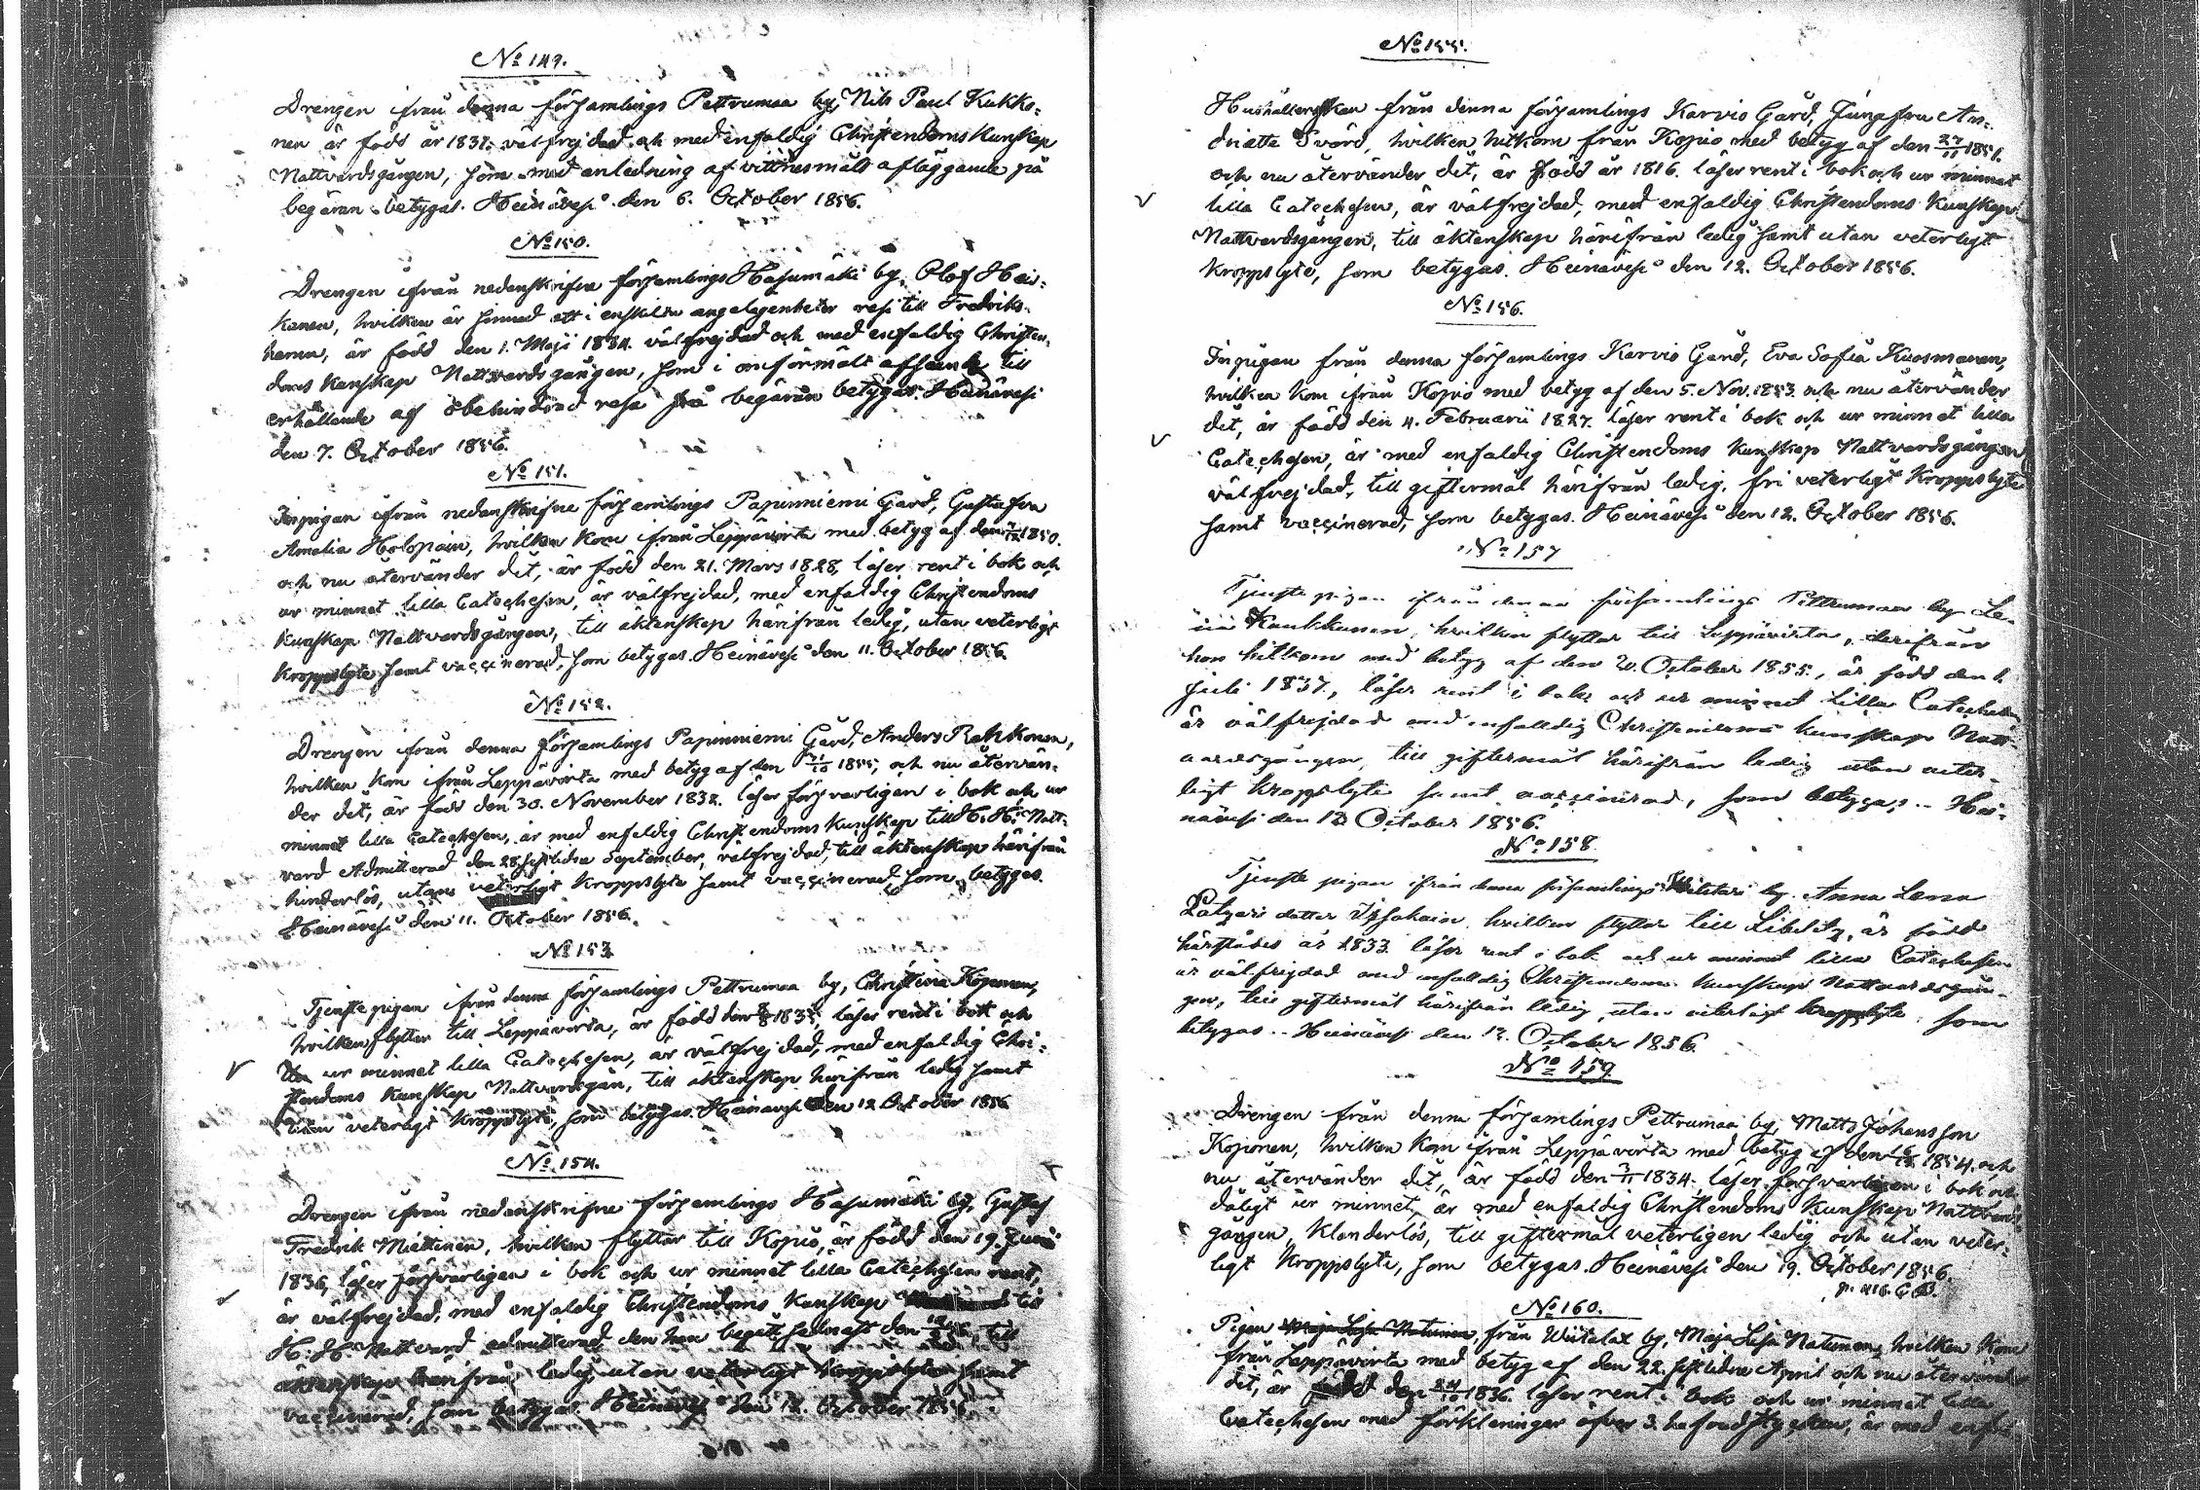 No 149.
Drengen ifrån denna församlings Pettrumaa by, Nils Paul Kukko-
nen är född år 1837. välfrejdad och med enfaldig Christendoms Kunskap
Nattvardsgången, som med anledning af vittnesmåls afläggande på
begäran betygas. Heinävesi den 6. October 1856.
No 150.
Drengen ifrån nedanskrifne församlings Hasumäki by, Olof Hei-
kanen, hvilken är sinnad att i enskilda angelägenheter resa till Fredriks-
hamn, är född den 1. Maji 1834. välfrejdad och med enfaldig Christen-
doms Kunskap Nattvardsgången, som i omförmält afseende till
erhållande af obehindrad resa på begäran betygas. Heinävesi
den 7. October 1856.
No 151.
Inpigan ifrån nedanskrifne församlings Papinniemi Gård, Gustafva
Amalia Holopain, hvilken kom ifrån Leppävirta med betyg af den 1850.
och nu återvänder dit, är född den 21. Mars 1828, läser rent i bok och
ur minnet lilla Catechesen, är välfrejdad, med enfaldig Christendoms
Kunskap Nattvardsgången, till äktenskap härifrån ledig, utan veterligt
Kroppslyte samt vaccinerad, som betygas. Heinävesi den 11. October 1856.
No 152.
Drengen ifrån denna församlings Papinniemi Gård, Anders Rahkonen,
hvilken kom ifrån Leppävirta med betyg af den 1855, och nu återvän-
der dit, är född den 30. November 1832. läser försvarligen i bok och ur
minnet lilla Catechesen, är med enfaldig Christendoms Kunskap till H. H. Natt-
vard Admitterad den 28 sistlidne September, välfrejdad, till äktenskap härifrån
hinderlös, utan veterligt Kroppslyte samt vaccinerad, som betygas.
Heinävesi den 11. October 1856.
No 153
Tjenstepigan ifrån denna församlings Pettrumaa by, Christina Koponen,
hvilken flyttar till Leppävirta, är född den 1835, läser rent i bok och
ur minnet lilla Catechesen, är välfrejdad, med enfaldig Chri-
stendoms Kunskap Nattvardsgån, till äktenskap härifrån ledig samt
utan veterligt Kroppslyte, som betygas. Heinävesi den 12 October 1856
No 154.
Drengen ifrån nedanskrifne församlings Hasumäki by, Gustaf
Fredrik Miettinen, hvilken flyttar till Kopio, är född den 19. Junii
1836, läser försvarligen i bok och ur minnet lilla Catechesen rent,
är välfrejdad, med enfaldig Christendoms Kunskap till
H. H. Nattvard admitterad den han begått sednast den till
äktenskap härifrån ledig, utan veterligt Kroppslyte samt
vaccinerad, som betygas. Heinävesi den 12. October 1856.
No 155.
Hushållerskan från denna församlings Karvio Gård, Jungfru An-
driette Svärd, hvilken hitkom från Kopio med betyg af den 27/11 1851.
och nu återvänder dit, är född år 1816. läser rent i bok och ur minnet
lilla Catechesen, är välfrejdad, med enfaldig Christendoms Kunskap
Nattvardsgången, till äktenskap härifrån ledig samt utan veterligt
Kroppslyte, som betygas. Heinävesi den 12. October 1856.
No 156.
Inpigan från denna församlings Karvio Gård, Eva Sofia Kuosmanen,
hvilken kom ifrån Kopio med betyg af den 5. Nov. 1853. och nu återvänder
dit, är född den 4. Februarii 1827. läser rent i bok och ur minnet lilla
Catechesen, är med enfaldig Christendoms Kunskap Nattvardsgången
välfrejdad, till giftermål härifrån ledig, fri veterligt Kroppslyte
samt vaccinerad, som betygas. Heinävesi den 12. October 1856.
No 157
Tjenste pigan ifrån denna församlings Pettrumaa by Le-
na Kaukkunen, hvilken flyttar till Leppävirta, derifrån
hon hitkom med betyg af den October 1855., är född den 1.
Juli 1837., läser rent i bok och ur minnet Lilla Catechesen
är välfrejdad med enfalldig Christendoms kunskap Natt-
vardsgången, till giftermål härifrån ledig utan veter-
ligt kroppslyte samt vaccinerad, som betygas. Hei-
nävesi den 13 October 1856.
No 158
Tjenste pigan ifrån denna församlings by Anna Lena
dotter hvilken flyttar till Libelitz, är född
härstädes år 1833 läser rent i bok och ur minnet lilla Catechesen
är välfrejdad med enfalldig Christendoms kunskap Nattvardsgån-
gen, till giftermål härifrån ledig, utan veterligt kroppslyte som
betygas. Heinävesi den 13. October 1856.
No 159
Drengen från denna församlings Pettrumaa by, Matts Johansson
Koponen, hvilken kom ifrån Leppävirta med betyg af den 1854, och
nu återvänder dit, är född den 1834. läser försvarligen i bok och
dåligt ur minnet, är med enfaldig Christendoms Kunskap Nattvards-
gången, Klanderlös, till giftermål veterligen ledig och utan veter-
ligt Kroppslyte, som betygas. Heinävesi den 19. October 1856.
No 160.
Pigan Maja Lisa Natunen, från Wiitalax by, Maja Lisa Natunen, hvilken kom
från Leppävirta med betyg af den 22. sistlidne April och nu återvänder
dit, är född den 24/10 1836. läser rent i bok och ur minnet lilla
Catechesen med förklaringar öfver 3. hufvudstycken, är med enfal-